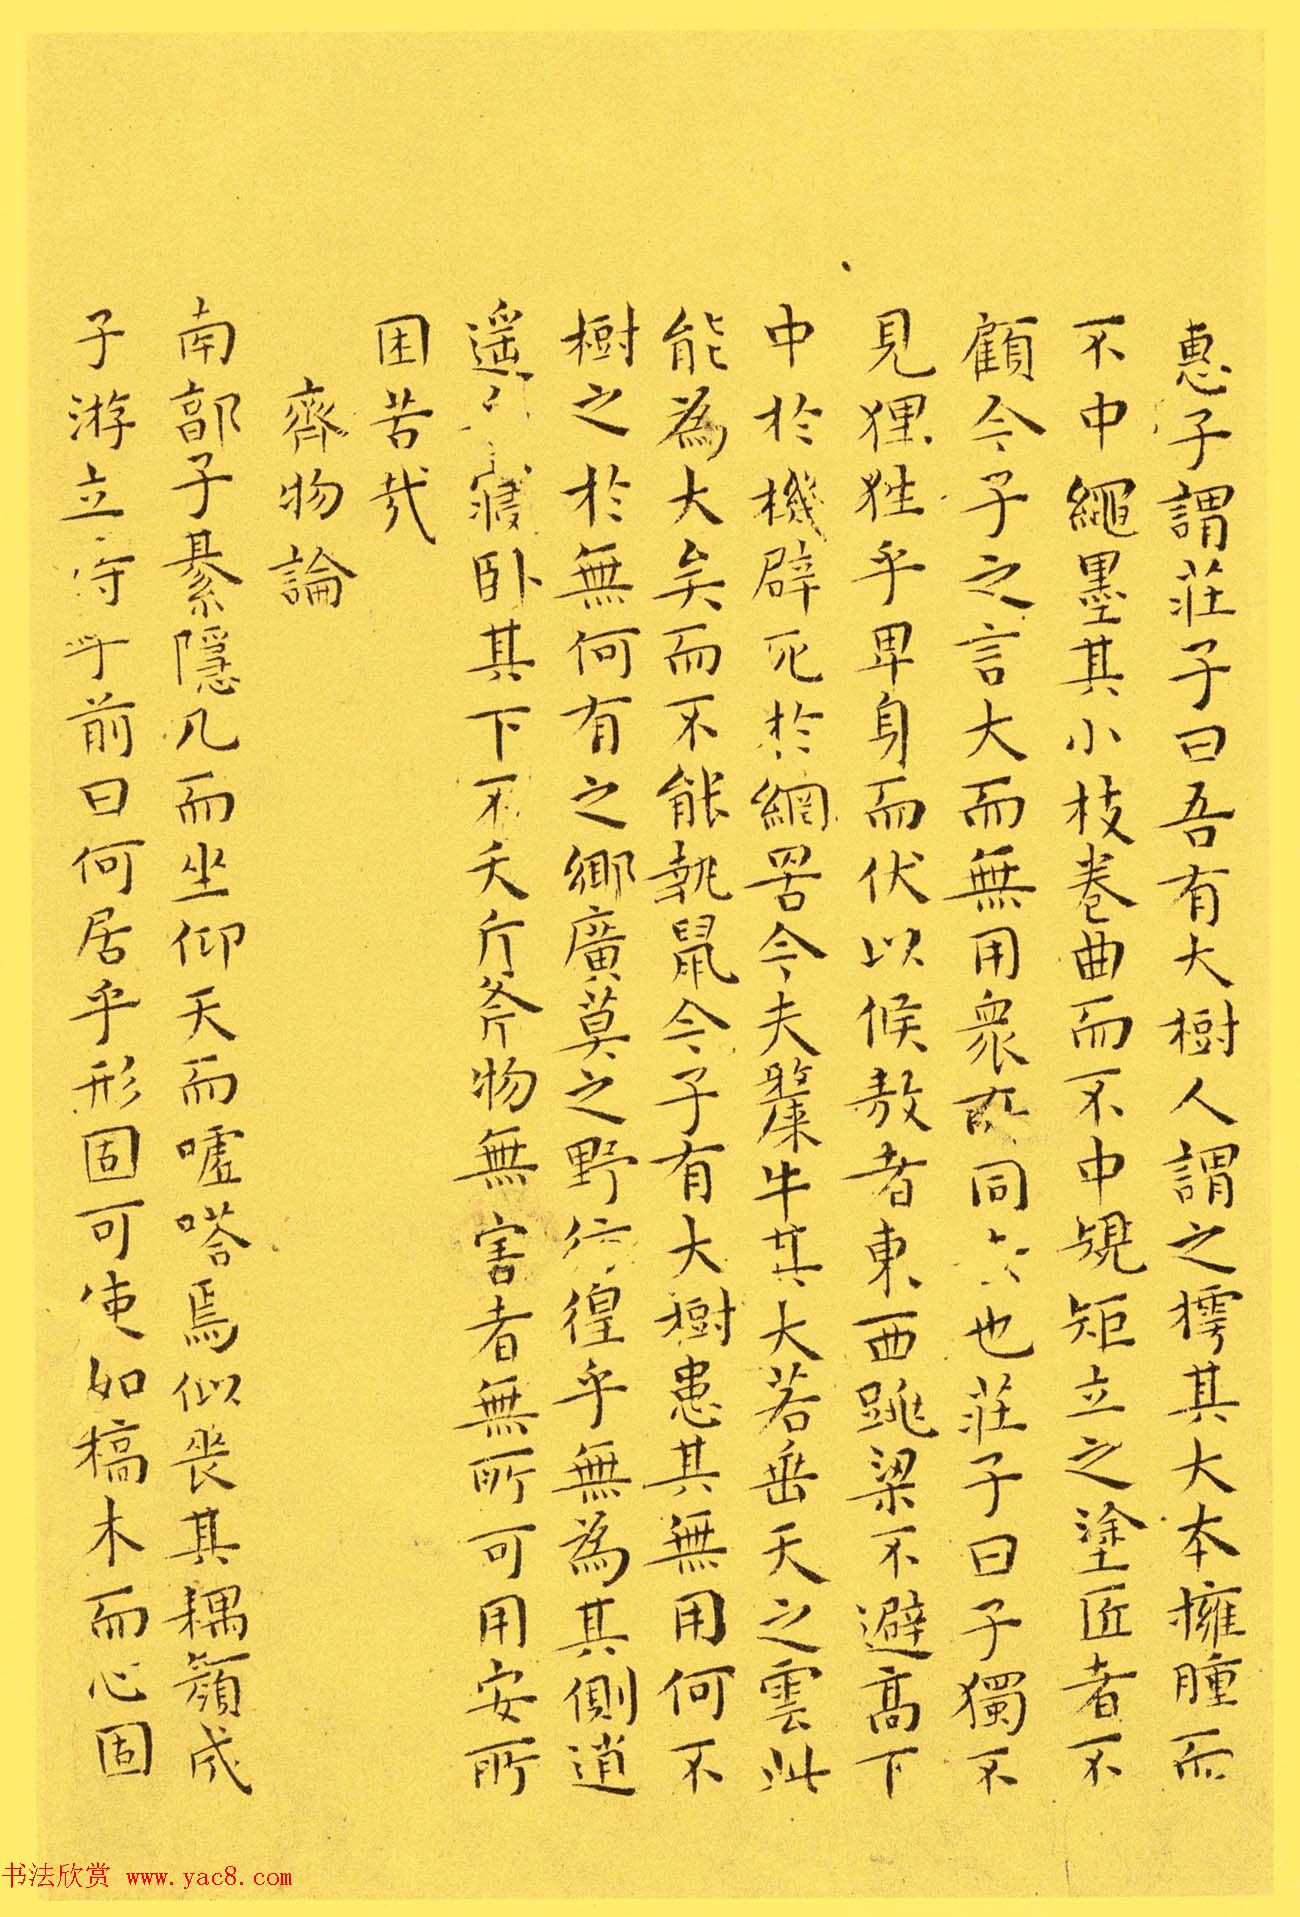 惠子謂莊子曰吾有大樹人謂之樗其大本擁腫而
不中繩墨其小枝卷曲而不中規矩立之塗匠者不
顧今子之言大而無用眾所同去也莊子曰子獨不
見狸狌乎卑身而伏以候敖者東西跳梁不避高下
中於機辟死於網罟今夫斄牛其大若垂天之雲此
能為大矣而不能執鼠今子有大樹患其無用何不
樹之於無何有之鄉廣莫之野彷徨乎無為其側逍
遥乎寢卧其下不夭斤斧物無害者無所可用安所
困苦哉
齊物論
南郭子綦隱几而坐仰天而噓嗒焉似喪其耦顏成
子游立侍乎前曰何居乎形固可使如槁木而心固
书法欣赏 www.yac8.com